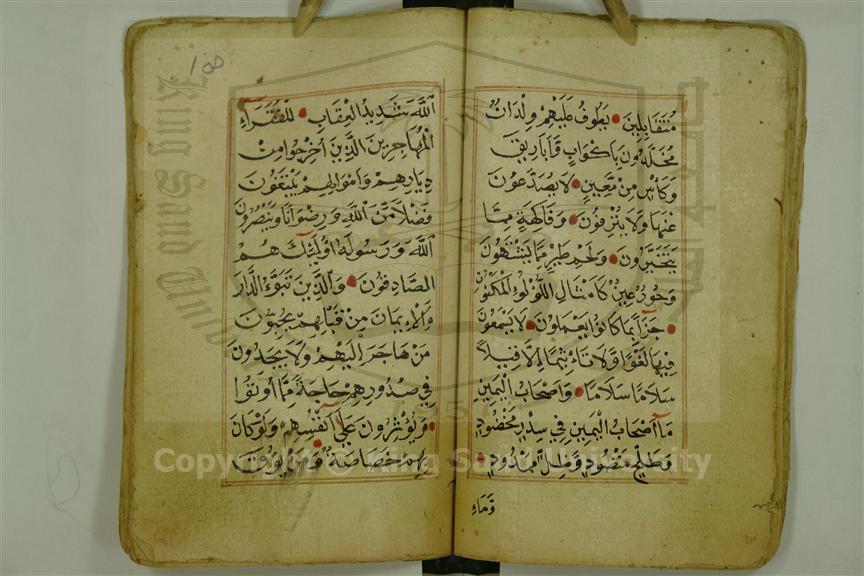 متقابلين يطوف عليهم ولدان
مخلدون باكواب واباريق
وكاس من معين لا يصدعون
عنها ولا ينزفون وفاكهة مما
يتخيرون ولحم طير مما يشتهون
وحور عين كامثال اللؤلؤ المكنون
جزآء بما كانوا يعملون لا يسمعون
فيها لغوا ولا تاثيما الا قيلا
سلاما سلاما واصحاب اليمين
مآ اصحاب اليمين في سدر مخضود
وطلح منضود وظل ممدود
وماء
155
الله شديد العقاب للفقرآء
المهاجرين الذين اخرجوا من
ديارهم واموالهم يبتغون
فضلا من الله ورضوانا وينصرون
الله ورسوله اولئك هم
الصادقون والذين تبوؤ الدار
والايمان من قبلهم يحبون
من هاجر اليهم ولا يجدون
في صدورهم حاجة مما اوتوا
ويؤثرون على انفسهم ولو كان
بهم خصاصة ومن يوق
Copyright © King Saud University
King Saud University